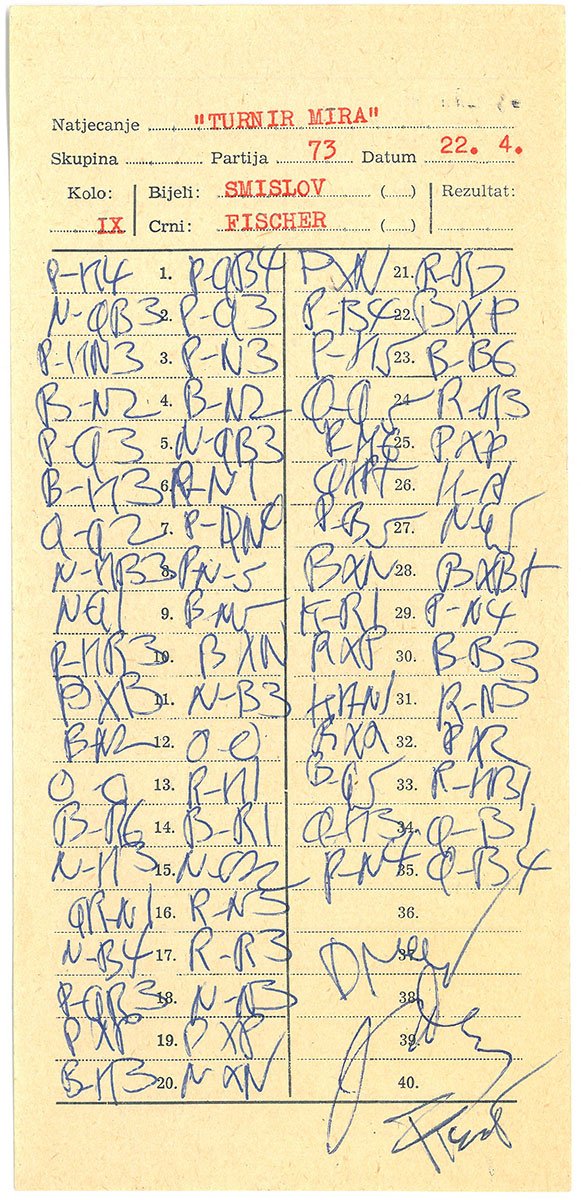 Natjecanje "TURNIR MIRA"
Skupina Partija 73 Datum 22. 4.
Kolo: IX
Bijeli: SMISLOV (....)
Crni: FISCHER (....)
Rezultat:
P-K4 1. P-QB4
N-QB3 2. P-Q3
P-KN3 3. P-N3
B-N2 4. B-N2
P-Q3 5. N-QB3
B-K3 6. R-N1
Q-Q2 7. P-QN4
N-KB3 8. P-N-5
N-Q1 9. B-N5
P-KR3 10. BXN
BXB 11. N-B3
B-N2 12. O-O
O-O 13. R-K1
B-R6 14. B-R1
N-K3 15. N-Q2
QR-N1 16. R-N3
N-B4 17. R-R3
P-QB3 18. N-N3
PXP 19. PXP
B-K3 20. NXN
PXN 21. R-R3
P-B4 22. BXP
P-K5 23. B-B6
Q-Q5 24. R-K3
25. PXP
QXP+ 26. K-R1
P-B5 27. N-Q5
BXN 28. BXB+
K-R1 29. P-N4
RXP 30. B-B3
KR-N1 31. R-N3
32. PXR
B-Q5 33. R-KB1
Q-K3 34. Q-B1
P-N4 35. Q-B4
36.
Draw 37.
38.
39.
40.